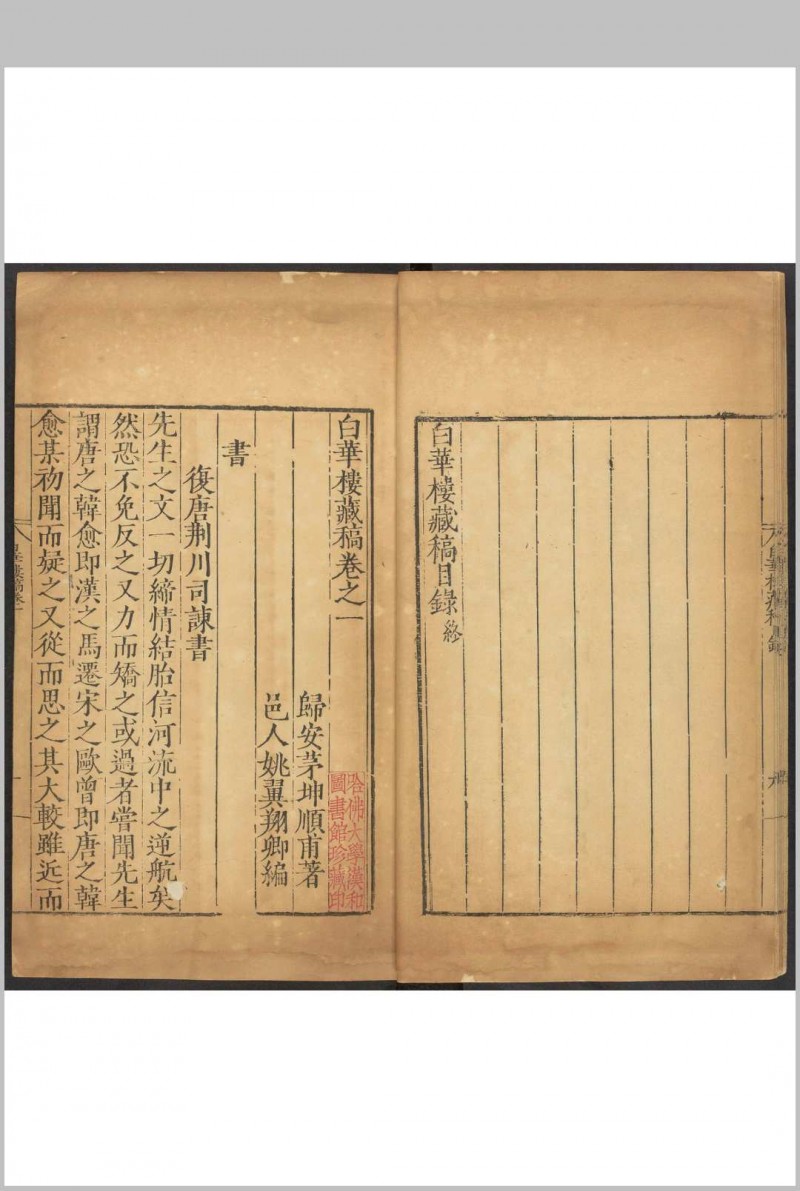 白華樓藏稿目錄終
白華樓藏稿卷之一
歸安茅坤順甫著
邑人姚翼翔卿編
書
復唐荆川司諫書
先生之文一切締情結胎信河流中之逆航矣
然恐不免反之又力而矯之或過者嘗聞先生
謂唐之韓愈即漢之馬遷宋之歐曾即唐之韓
愈某初聞而疑之又從而思之其大較雖近而
哈佛大學漢和
圖書館珍藏印